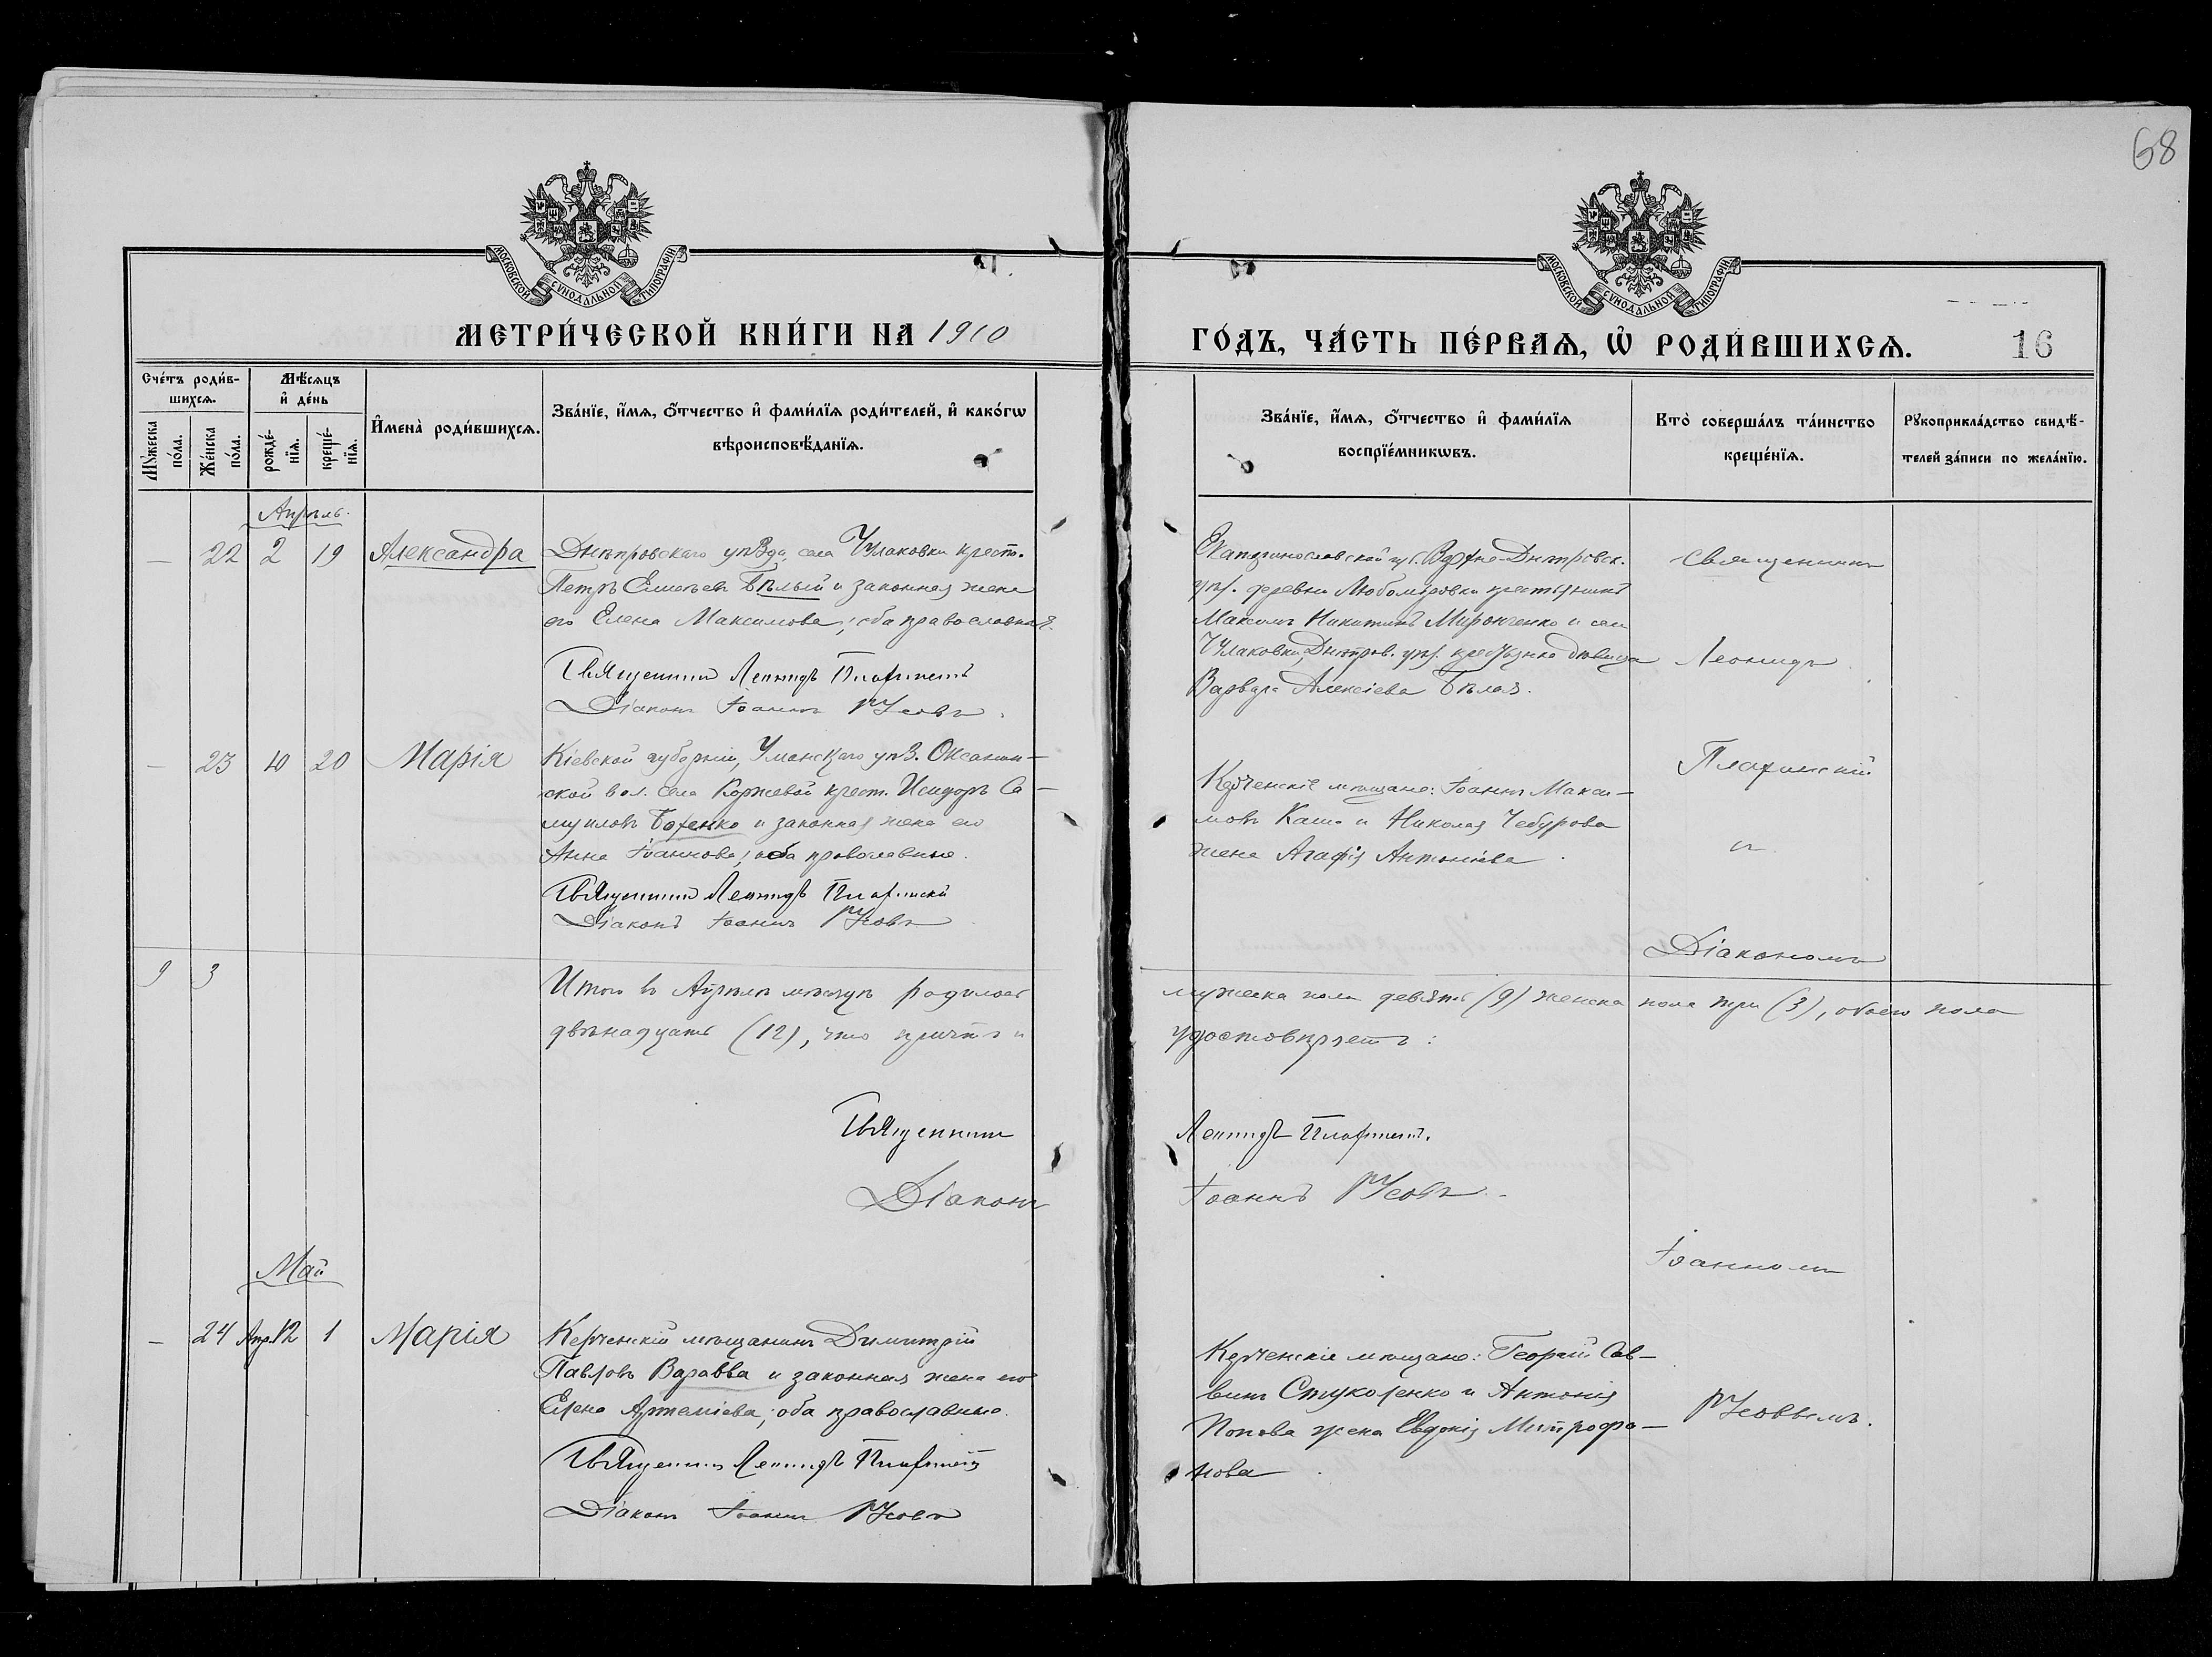 68
МОСКОВСКОЙ СѴНОДАЛЬНОЙ ТИПОГРАФІИ
МОСКОВСКОЙ СѴНОДАЛЬНОЙ ТИПОГРАФІИ
МЕТРИ́ЧЕСКОЙ КНИ́ГИ НА 1910
ГО́ДЪ, ЧА́СТЬ ПЕ́РВАѦ, Ѡ҆ РОДИ́ВШИХСѦ.
16
Сче́тъ роди́в-
шихсѧ.
Мꙋ́жеска по́ла.
Же́нска по́ла.
Мѣ́сѧцъ
и҆ де́нь
рожде́-
нїѧ.
креще́-
нїѧ.
И҆мена̀ роди́вшихсѧ.
Зва́нїе, и҆́мѧ, ѻ҆́тчество и҆ фами́лїѧ роди́телей, и҆ како́гѡ
вѣроисповѣ́данїѧ.
Зва́нїе, и҆́мѧ, ѻ҆́тчество и҆ фами́лїѧ
воспрїе́мникѡвъ.
Кто̀ соверша́лъ та́инство
креще́нїѧ.
Рꙋкоприкла́дство свидѣ́-
телей за́писи по жела́нїю.
Апрѣль.
— 22 2 19 Александра
Днѣпровскаго уѣзда, села Чулаковки крест.
Петръ Елисѣевъ Бѣлый и законная жена
его Елена Максимова; оба православные.
Священникъ Леонидъ
Діаконъ Іоаннъ Усовъ.
Екатеринославской губ. Верхне-Днѣпровск.
уѣз. деревни Любомировки крестьянинъ
Максимъ Никитинъ Миронченко и села
Чулаковки, Днѣпров. уѣз. крестьянка дѣвица
Варвара Алексіева Бѣлая.
Священникъ
Леонидъ
— 23 10 20 Марія
Кіевской губерніи, Уманскаго уѣз. Оксанин-
ской вол. села Коржевой крест. Исидоръ Са-
муиловъ Боженко и законная жена его
Анна Іоаннова; оба православные.
Священникъ Леонидъ
Діаконъ Іоаннъ Усовъ
Керченскіе мѣщане: Іоаннъ Макси-
мовъ Каша и Николая Чебурова
жена Агафія Антоніева.
и
Діакономъ
9 3
Итого въ Апрѣлѣ мѣсяцѣ родилось
мужеска пола девять (9) женска пола три (3), обоего пола
двѣнадцать (12), что причтъ и
удостовѣряетъ:
Священникъ
Леонидъ
Діаконъ
Іоаннъ Усовъ.
Май
Іоанномъ
— 24 Апр. 12 1 Марія
Керченскій мѣщанинъ Димитрій
Павловъ Варавва и законная жена его
Елена Артеміева; оба православные.
Священникъ Леонидъ
Діаконъ Іоаннъ Усовъ
Керченскіе мѣщане: Георгій Сав-
винъ Стуколенко и Антонія
Попова жена Евдокія Митрофа-
нова.
Усовымъ.